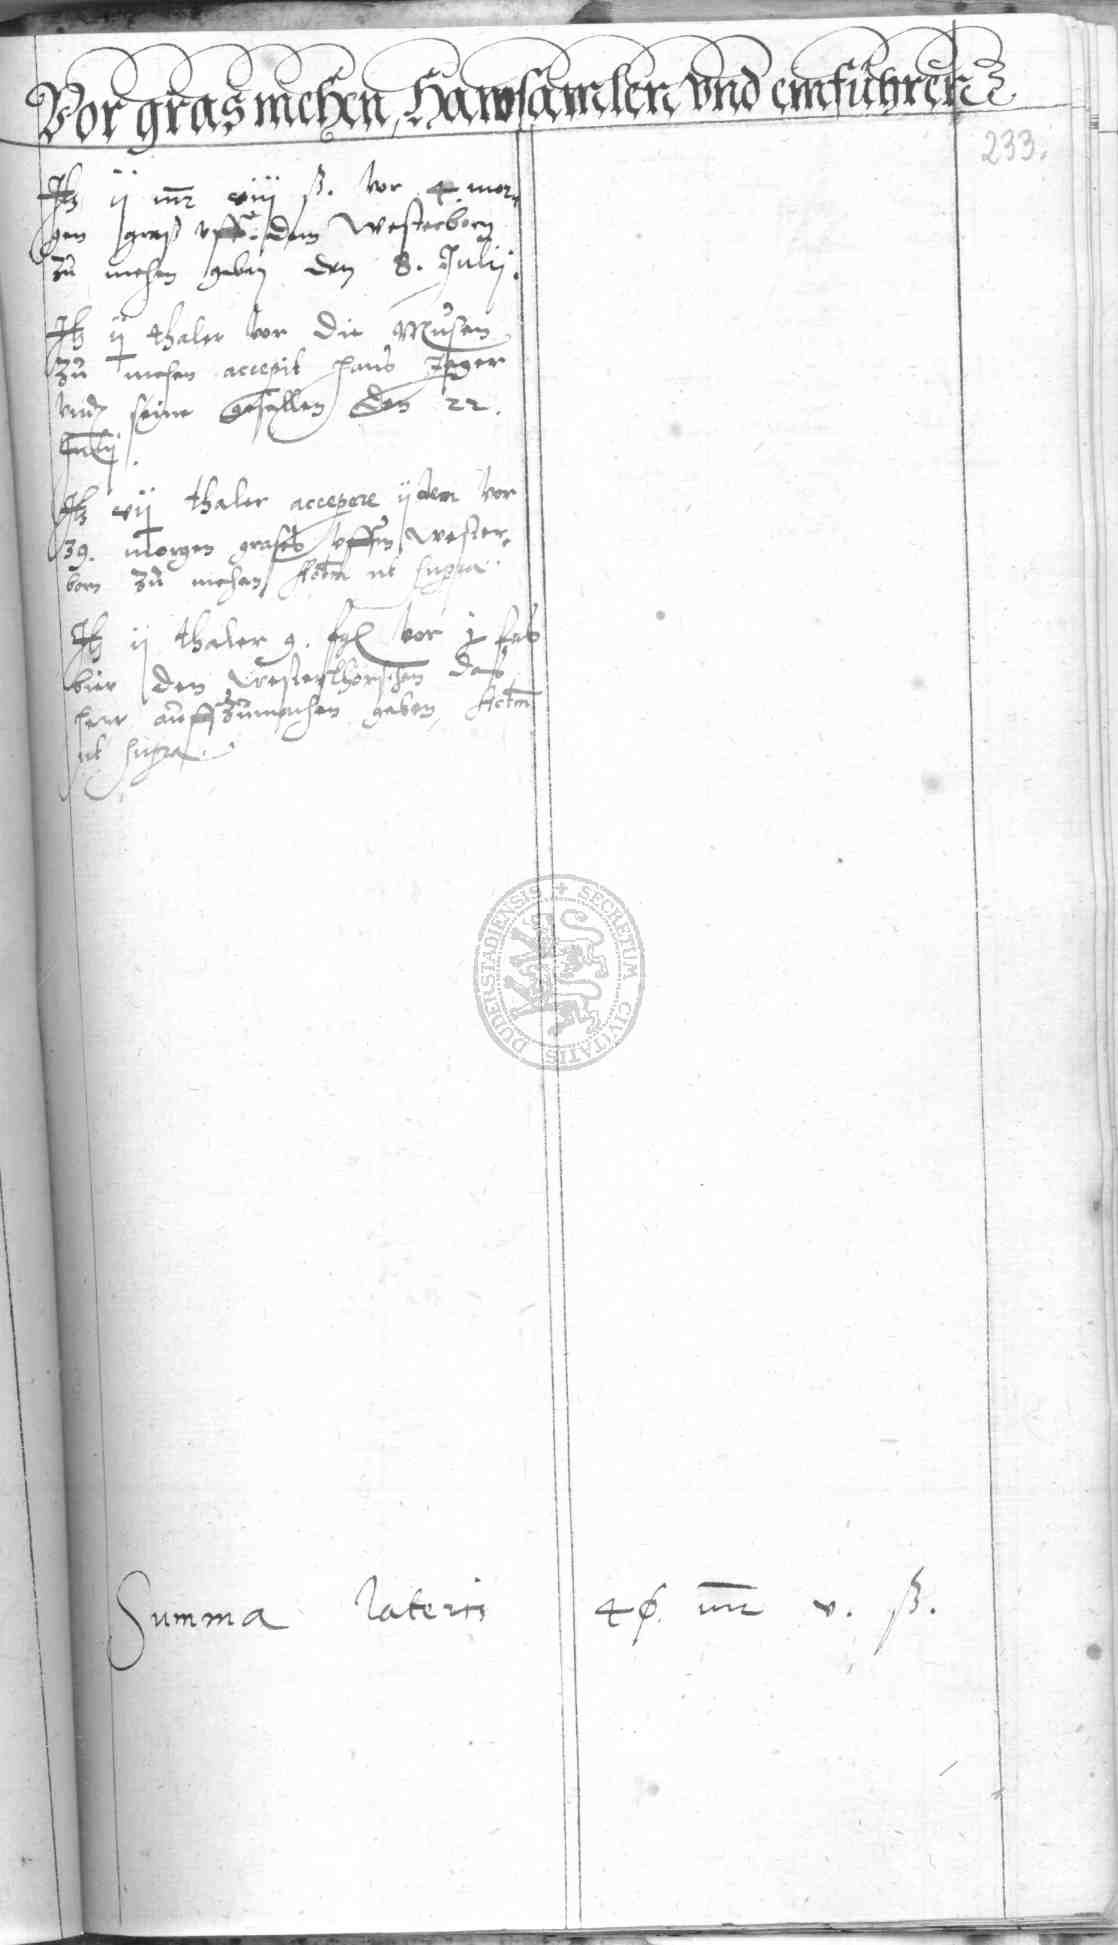 Vor gras mehen, Hawsamlen vnd einfuhren
233.
It ij mr viij ß. vor 4. mor,
gen graß vff dem Westerborn
zu mehen geben den 8. Julij.
It ij thaler vor die
zu mehen accepit Hans Jeger
vnd seine gesellen den 22.
Julij.
It vij thaler accepere ijdem vor
39. morgen grases vffm Wester,
born zu mehen Actm ut supra.
It ij thaler 9. vor j faß
bier den Westerthorschen daß
hew auffzumachen geben, Actm
ut supra.
DUDERSTADIENSIS + SECRETUM CIVITATIS
Summa lateris mr v. ß.